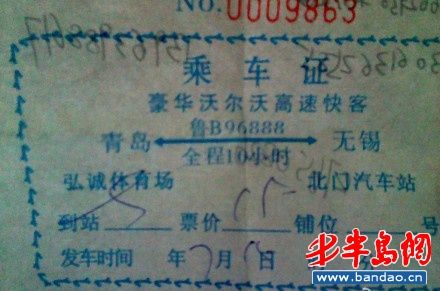 No.0009863
乘车证
豪华沃尔沃高速快客
鲁B96888
青岛 无锡
全程10小时
弘诚体育场 北门汽车站
到站 票价 铺位 号
发车时间 年 月 日
半岛网
www.bandao.cn